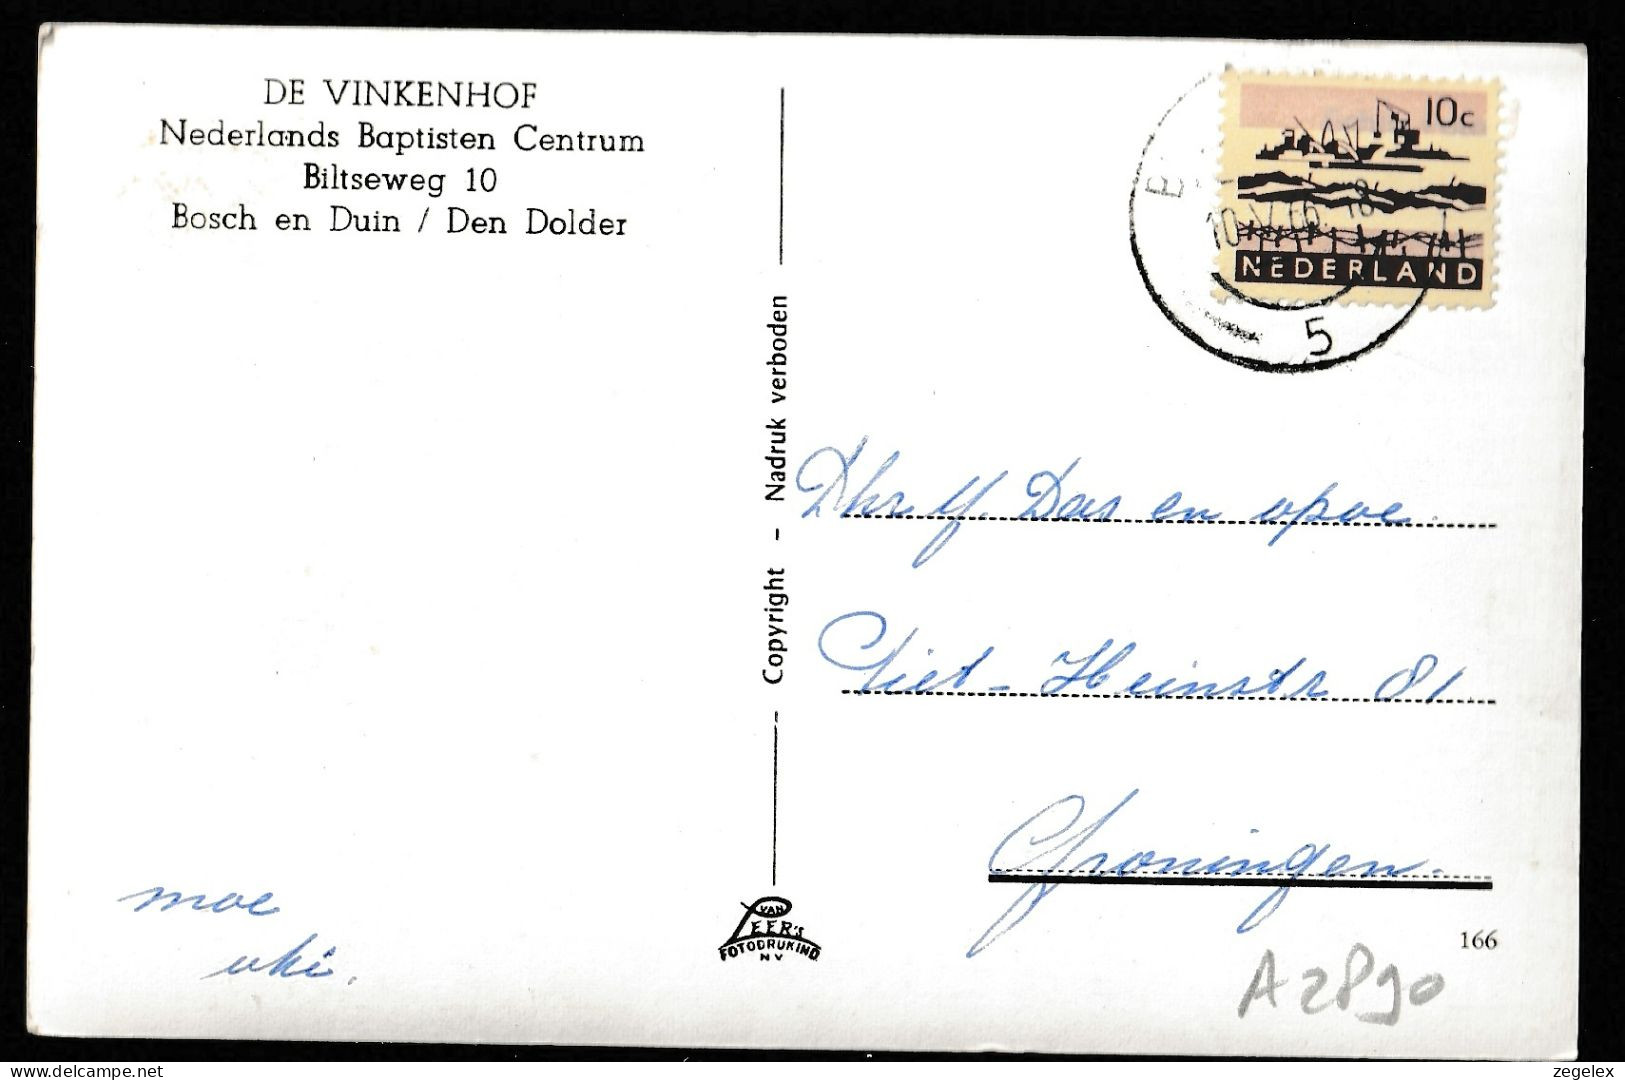 DE VINKENHOF
Nederlands Baptisten Centrum
Biltseweg 10
Bosch en Duin / Den Dolder
10c
NEDERLAND
10.V.66.18
5
Copyright - Nadruk verboden
Dhr Y. Das en opoe.
Piet-Heinstr 81.
Groningen.
moe
VAN
PEER's
FOTODRUKIND.
NV
166
A2890
delcampe.net
zegelex